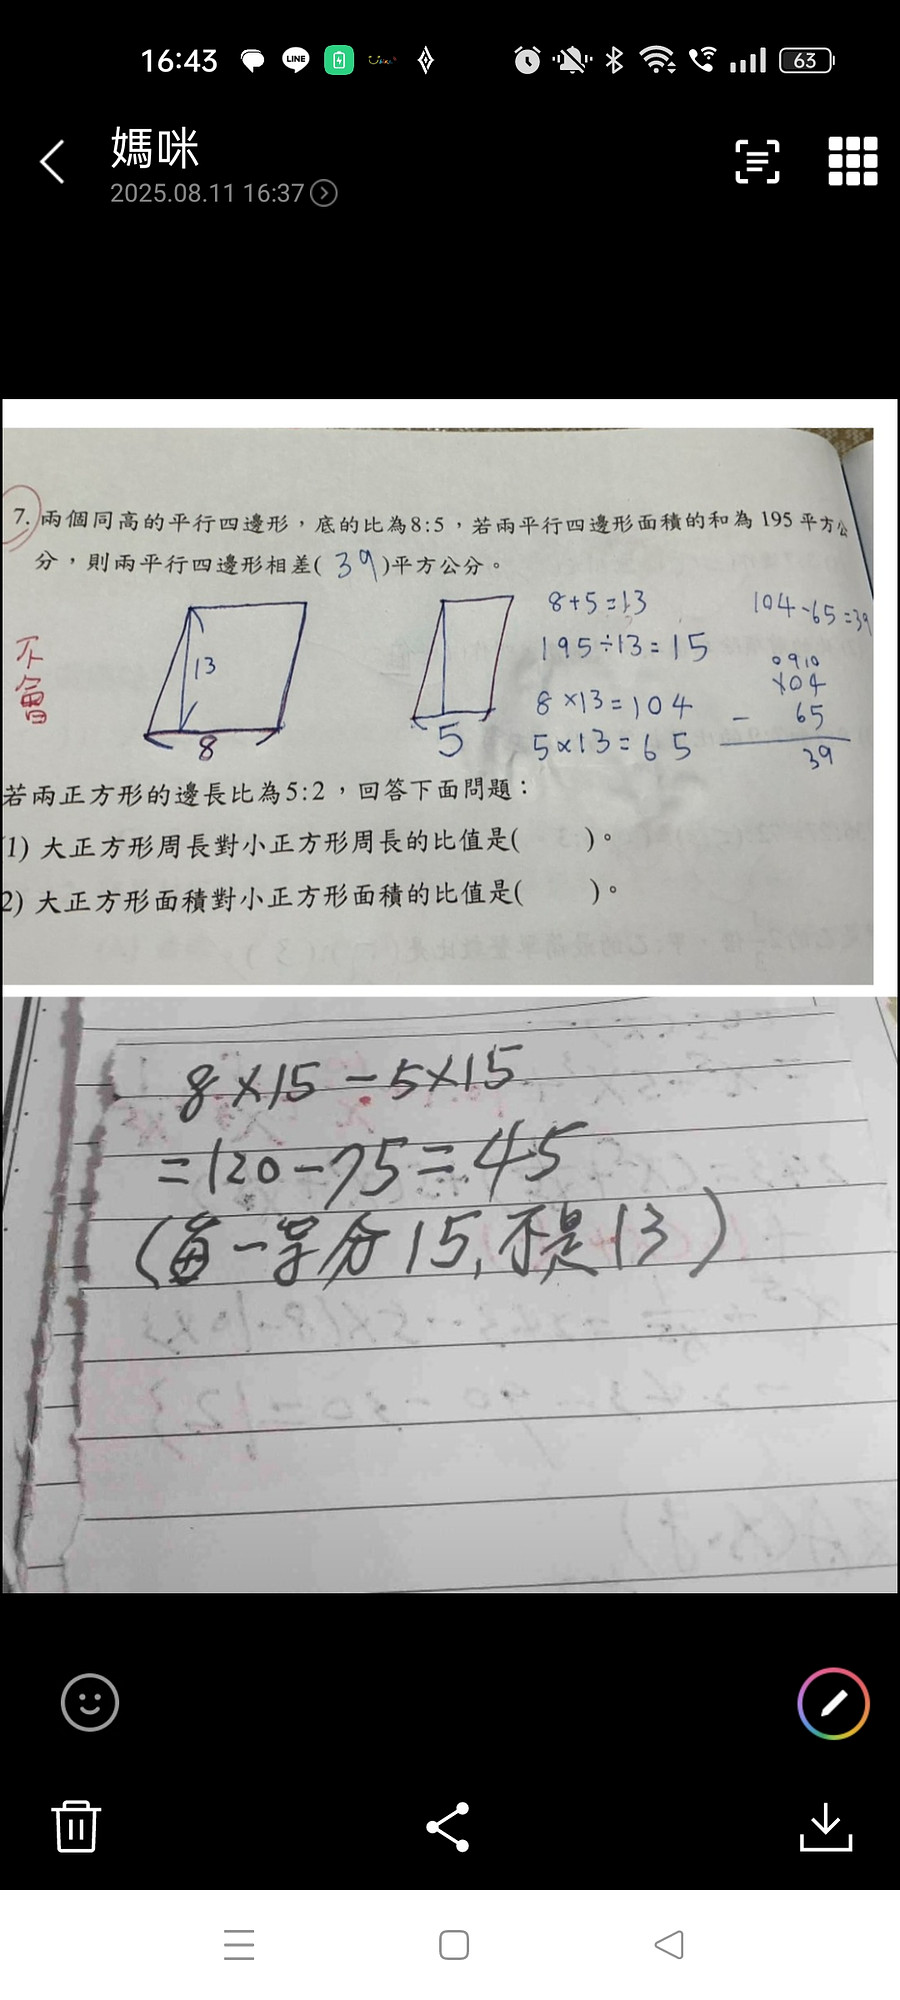 16:43
LINE
63
媽咪
2025.08.11 16:37
7. 兩個同高的平行四邊形，底的比為8:5，若兩平行四邊形面積的和為 195 平方公
分，則兩平行四邊形相差( 39 )平方公分。
不會
13
8
5
8+5=13
195÷13=15
8×13=104
5×13=65
104-65=39
0 9 10
104
- 65
39
若兩正方形的邊長比為5:2，回答下面問題：
1) 大正方形周長對小正方形周長的比值是(　　)。
2) 大正方形面積對小正方形面積的比值是(　　)。
8×15-5×15
=120-75=45
(每一等分15,不是13)